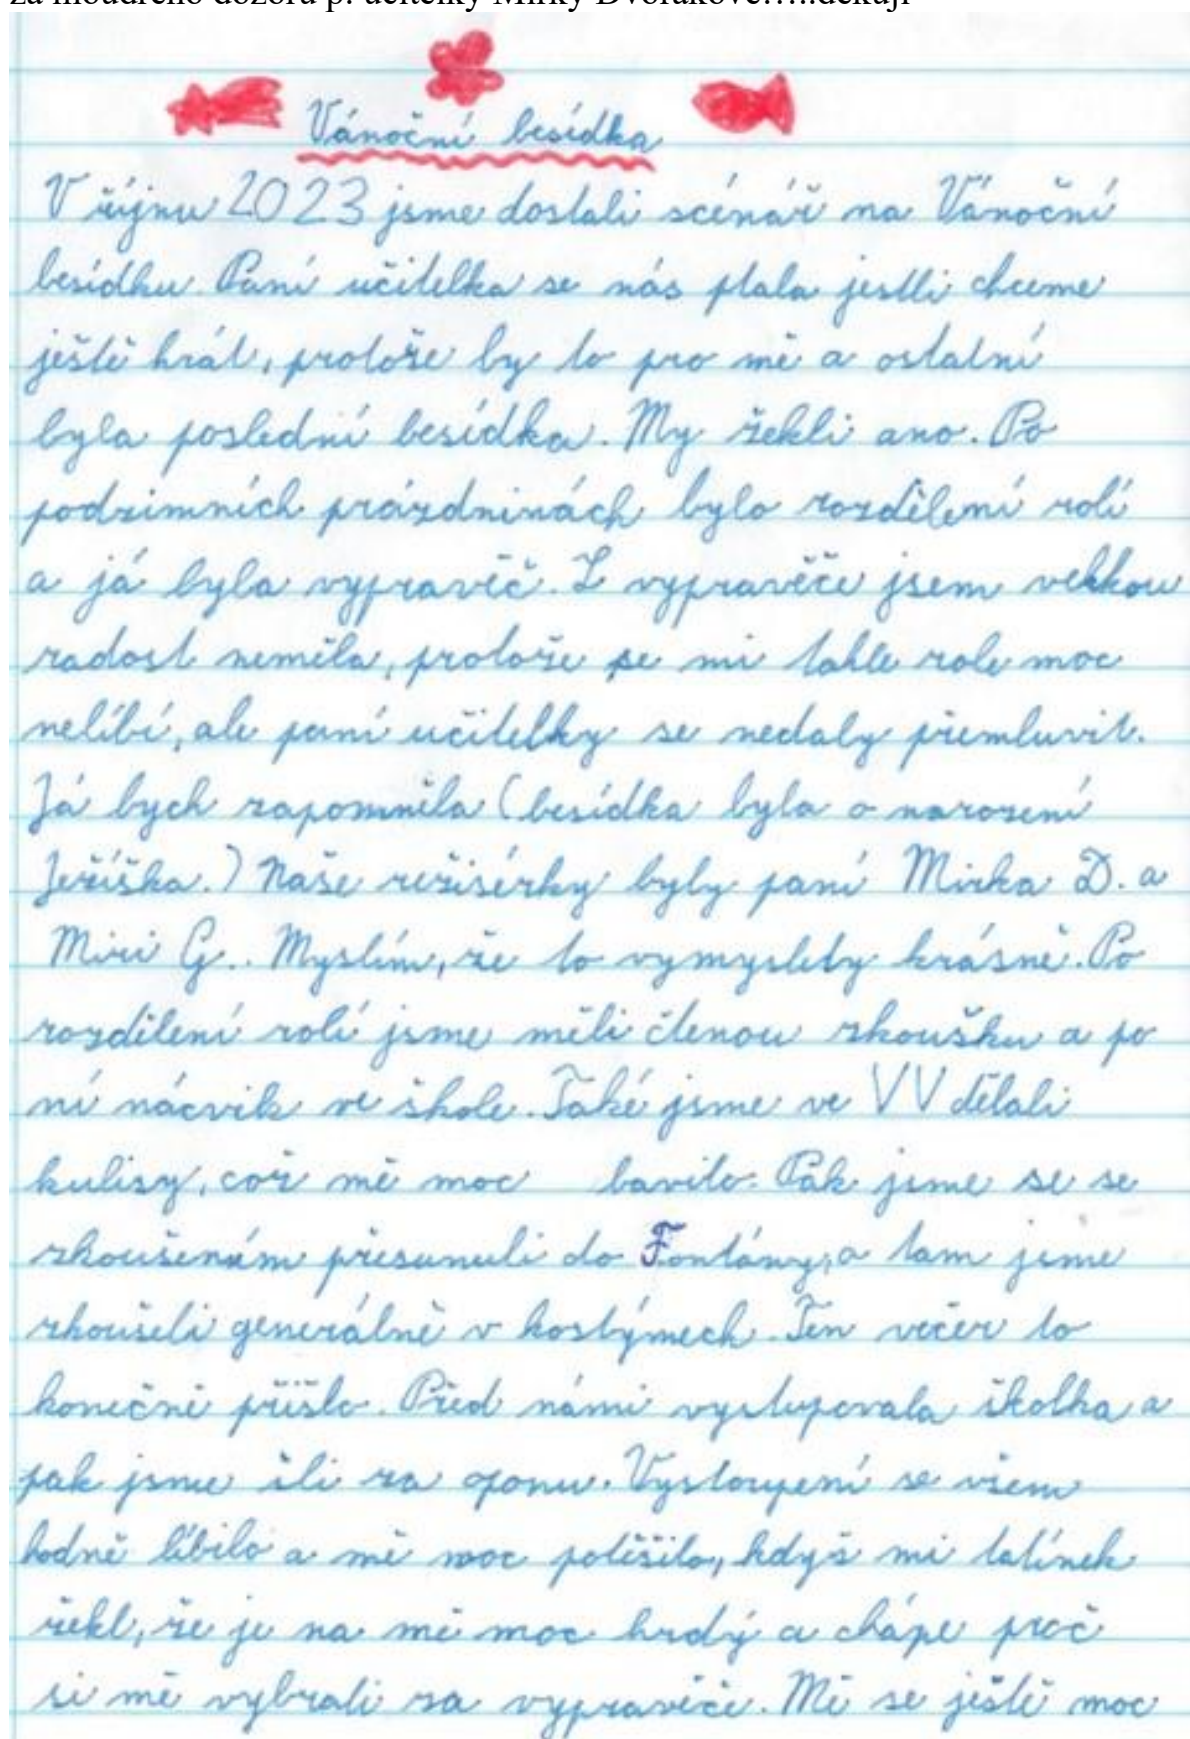 za moudrého dozoru p. učitelky Mirky Dvořákové…..děkuji
Vánoční besídka
V říjnu 2023 jsme dostali scénář na Vánoční
besídku. Paní učitelka se nás ptala jestli chceme
ještě hrát, protože by to pro mě a ostatní
byla poslední besídka. My řekli ano. Po
podzimních prázdninách bylo rozdělení rolí
a já byla vypravěč. Z vypravěče jsem velkou
radost neměla, protože se mi tahle role moc
nelíbí, ale paní učitelky se nedaly přemluvit.
Já bych zapomněla (besídka byla o narození
Ježíška.) Naše režisérky byly paní Mirka D. a
Miri G.. Myslím, že to vymyslely krásně. Po
rozdělení rolí jsme měli čtenou zkoušku a po
ní nácvik ve škole. Také jsme ve VV dělali
kulisy, což mě moc bavilo. Pak jsme se se
zkoušením přesunuli do Fontány, a tam jsme
zkoušeli generálně v kostýmech. Ten večer to
konečně přišlo. Před námi vystupovala školka a
pak jsme šli za oponu. Vystoupení se všem
hodně líbilo a mě moc potěšilo, když mi tatínek
řekl, že je na mě moc hrdý a chápe proč
si mě vybrali za vypravěče. Mě se ještě moc